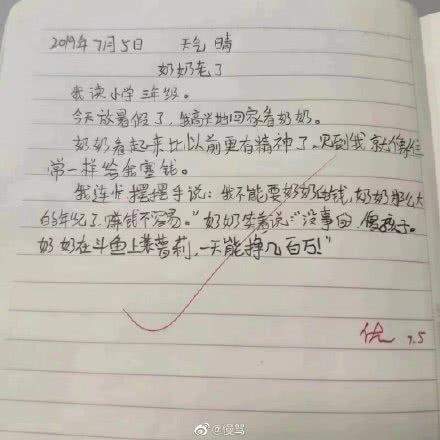 2019年7月5日 天气 晴
奶奶老了
我读小学三年级。
今天放暑假了，我高兴地回家看奶奶。
奶奶看起来比以前更有精神了。见到我就像往
常一样给我塞钱。
我连忙摆摆手说：我不能要奶奶的钱，奶奶那么大
的年纪了，赚钱不容易。"奶奶笑着说："没事的，傻孩子。
奶奶在斗鱼上装萝莉，一天能挣几百万！"
优 7.5
@慢骂